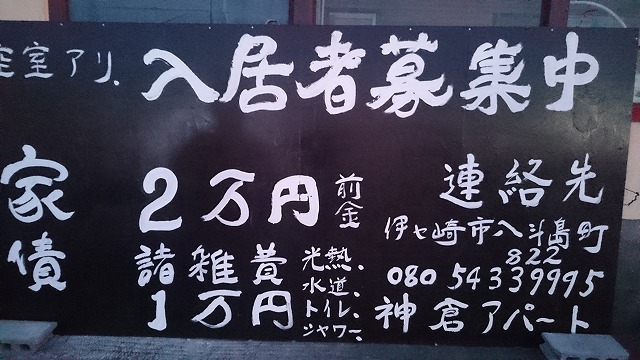 空室アリ、入居者募集中
家債
2万円 前金
諸雑費 1万円
光熱、
水道、
トイレ、
シャワー、
連絡先
伊七崎市八斗島町
822
080 5433 9995
神倉アパート